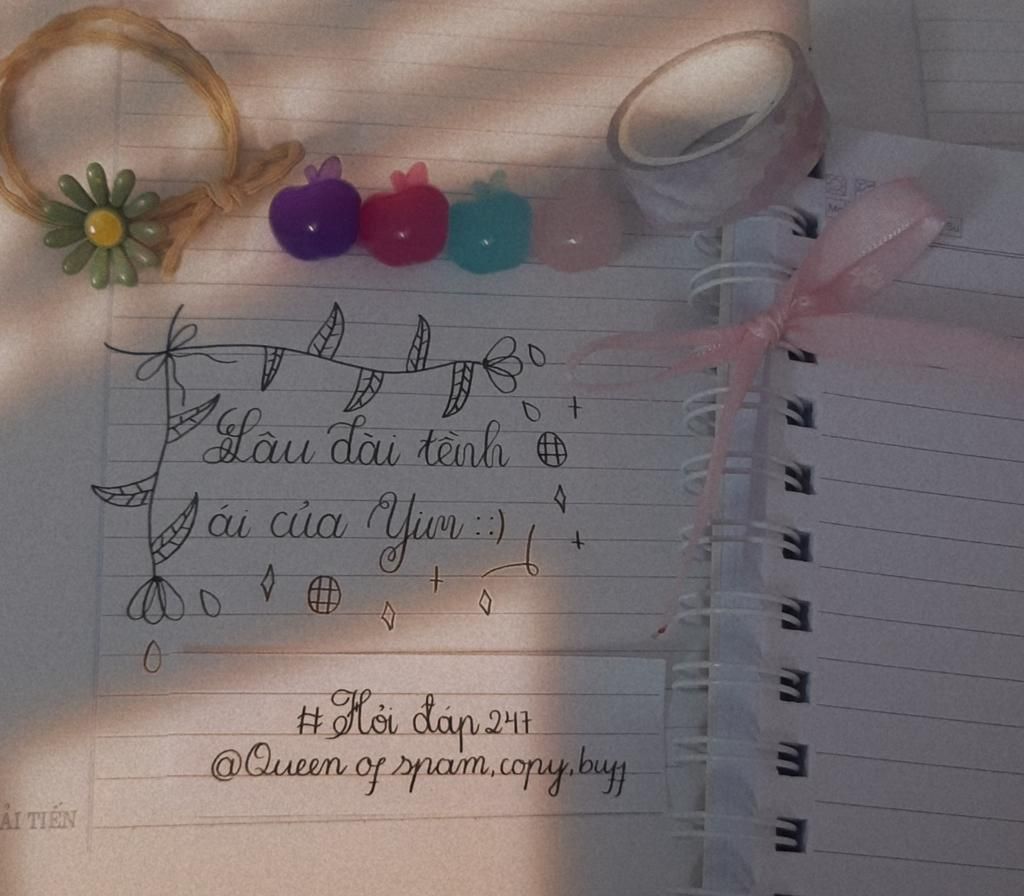 Lâu đài tềnh
ái của Yun ::)
#Hỏi đáp 247
@Queen of spam,copy,buff
ẢI TIẾN